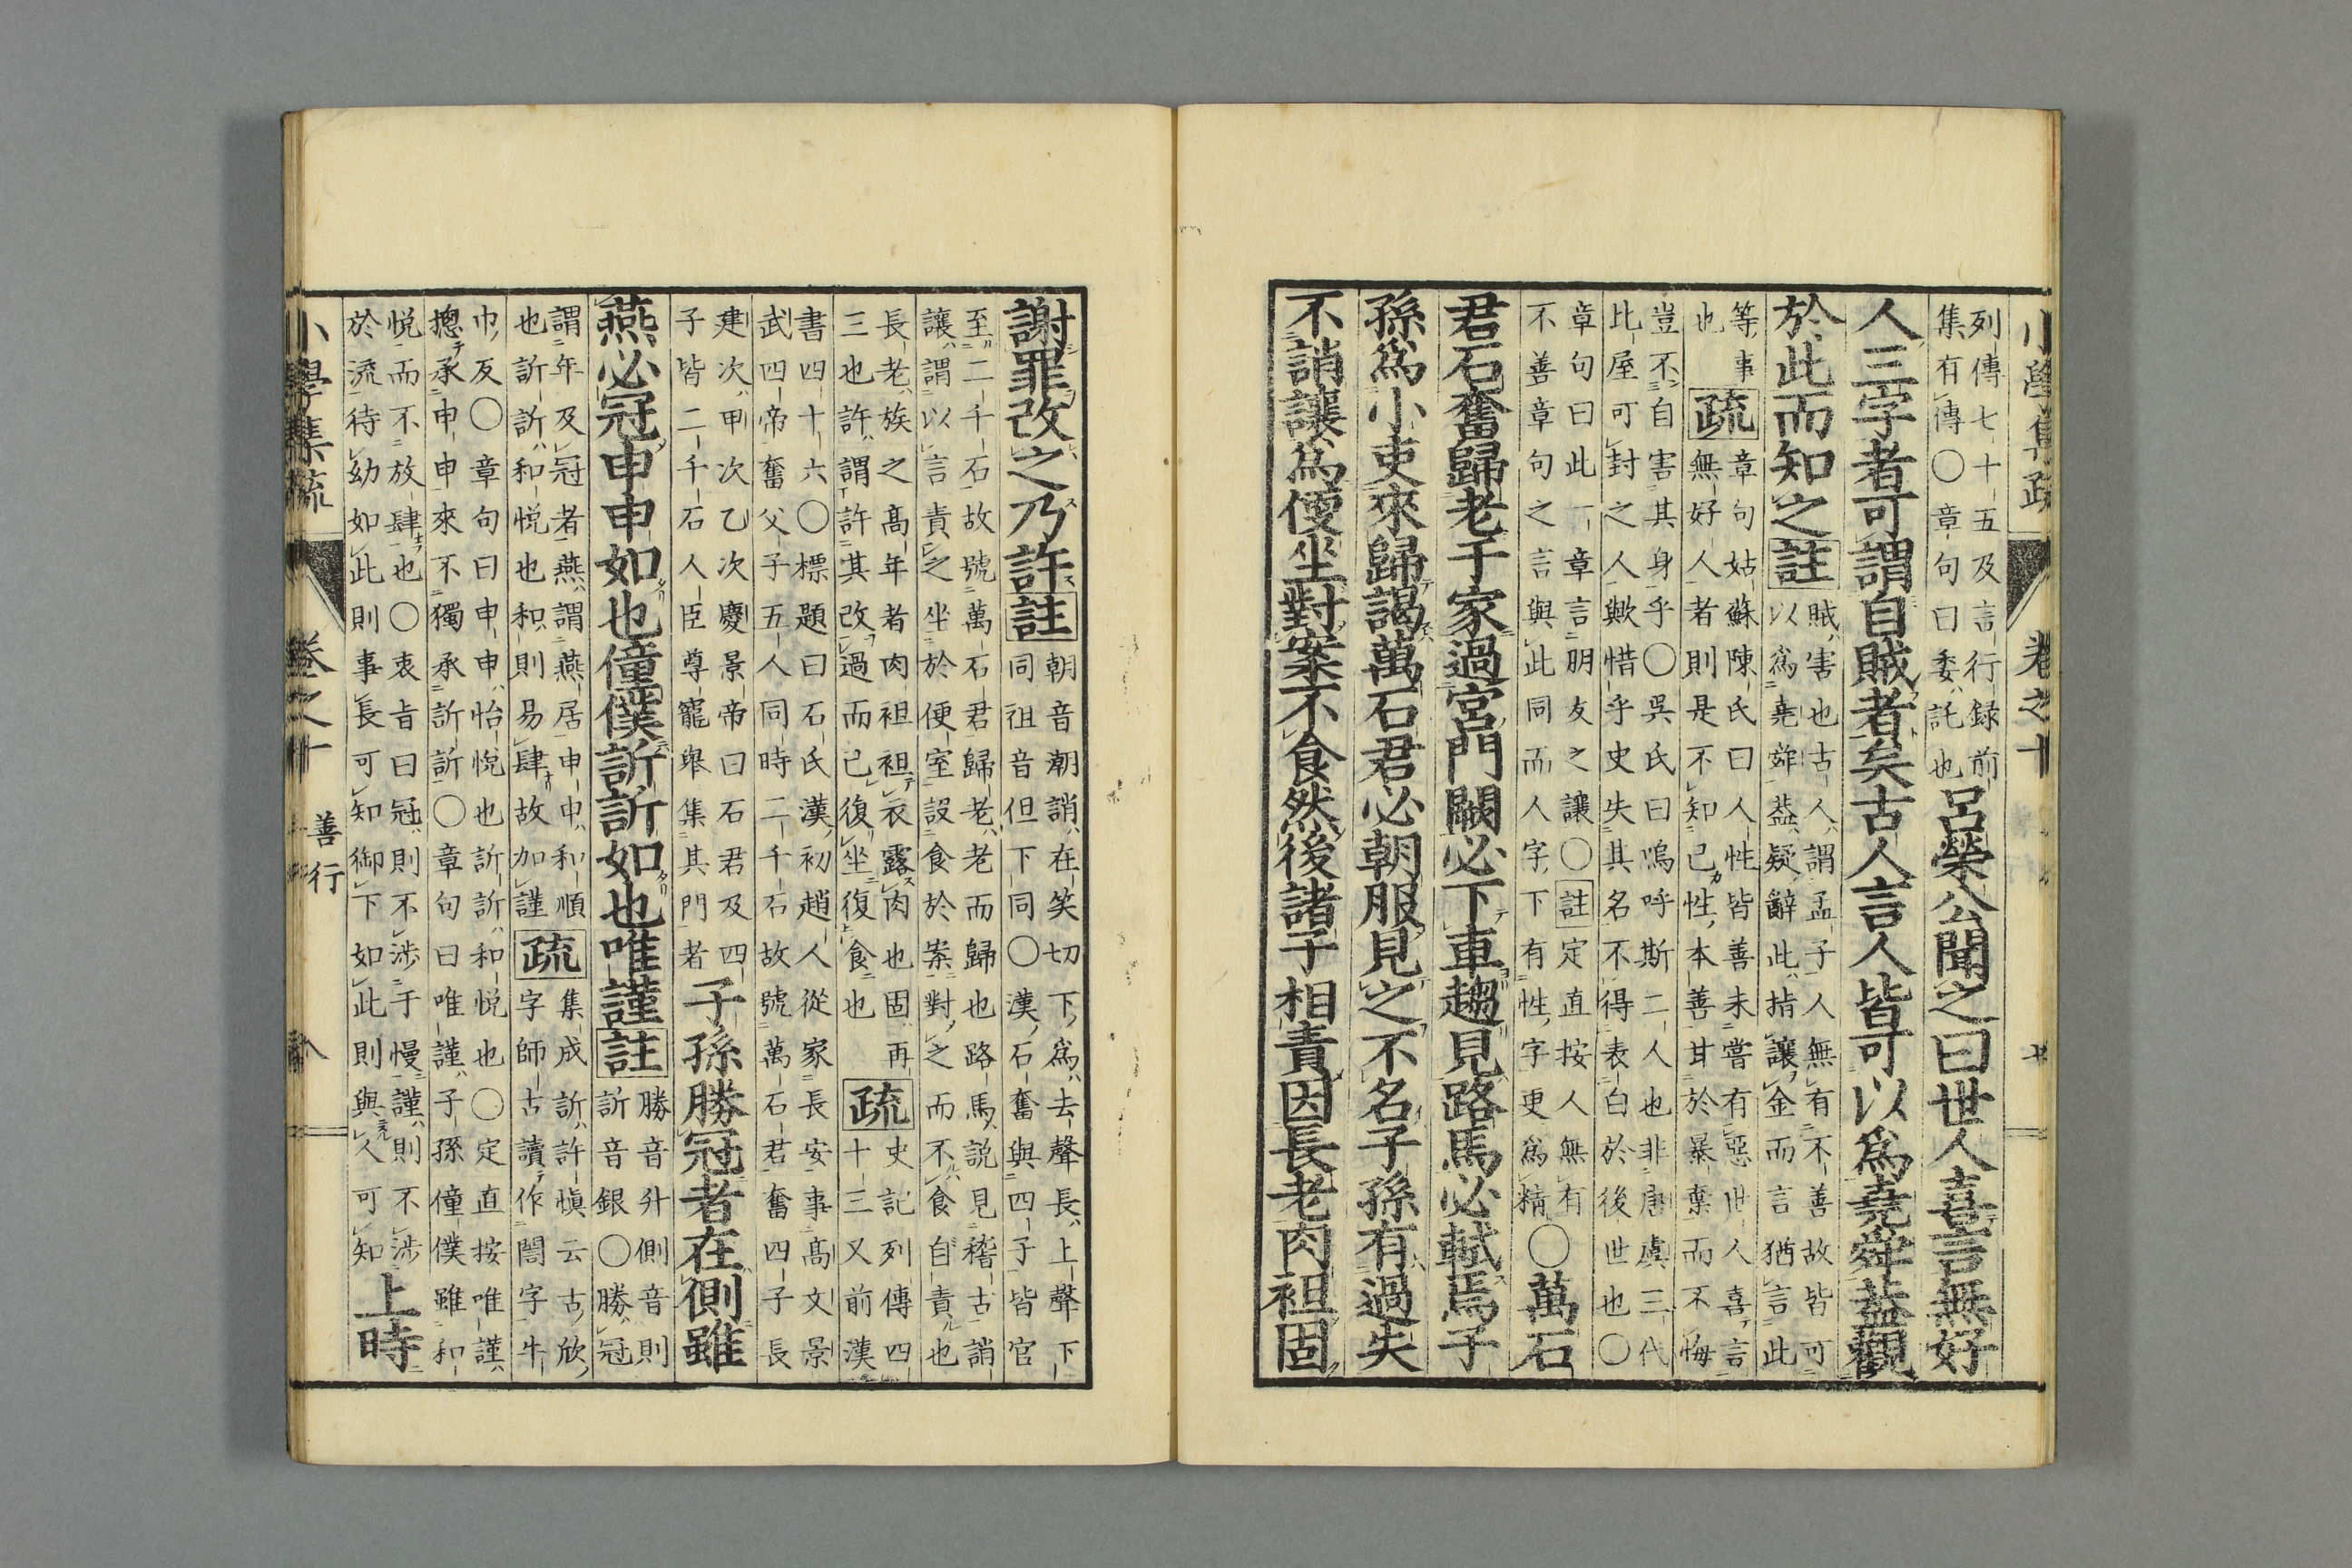 小學集疏　卷之十　七
列傳七十五及言行録前
集有傳〇章句曰委託也
呂榮公聞之曰世人喜言無好
人三字者可謂自賊者矣古人言人皆可以爲堯舜蓋觀
於此而知之註
賊害也古人謂孟子人無有不善故皆可
以爲堯舜蓋疑辭此指讓金而言猶言此
等事
也
疏
章句姑蘇陳氏曰人性皆善未嘗有惡世人喜言
無好人者則是不知己性本善甘於暴棄而不悔
豈不自害其身乎〇吳氏曰嗚呼斯二人也非唐虞三代
比屋可封之人歟惜乎史失其名不得表白於後世也〇
章句曰此一章言朋友之讓〇註定直按人無有
不善章句之言與此同而人字下有性字更爲精
〇萬石
君石奮歸老于家過宮門闕必下車趨見路馬必軾焉子
孫爲小吏來歸謁萬石君必朝服見之不名子孫有過失
不誚讓爲便坐對案不食然後諸子相責因長老肉袒固
謝罪改之乃許註
朝音潮誚在笑切下爲去聲長上聲下
同袒音但下同〇漢石奮與四子皆官
至二千石故號萬石君歸老老而歸也路馬說見稽古誚
讓謂以言責之坐於便室設食於案對之而不食自責也
長老族之高年者肉袒袒衣露肉也固再
三也許謂許其改過而已復坐復食也
疏
史記列傳四
十三又前漢
書四十六〇標題曰石氏漢初趙人從家長安事高文景
武四帝奮父子五人同時二千石故號萬石君奮四子長
建次甲次乙次慶景帝曰石君及四
子皆二千石人臣尊寵舉集其門者
子孫勝冠者在側雖
燕必冠申申如也僮僕訢訢如也唯謹註
勝音升側音則
訢音銀〇勝冠
謂年及冠者燕謂燕居申申和順
也訢訢和悅也和則易肆故加謹
疏
集成訢許愼云古欣
字師古讀作誾字牛
巾反〇章句曰申申怡悅也訢訢和悅也〇定直按唯謹
摠承申申來不獨承訢訢〇章句曰唯謹子孫僮僕雖和
悅而不放肆也〇衷旨曰冠則不涉于慢謹則不涉
於流待幼如此則事長可知御下如此則與人可知
上時
小學集疏　卷之十　善行　八